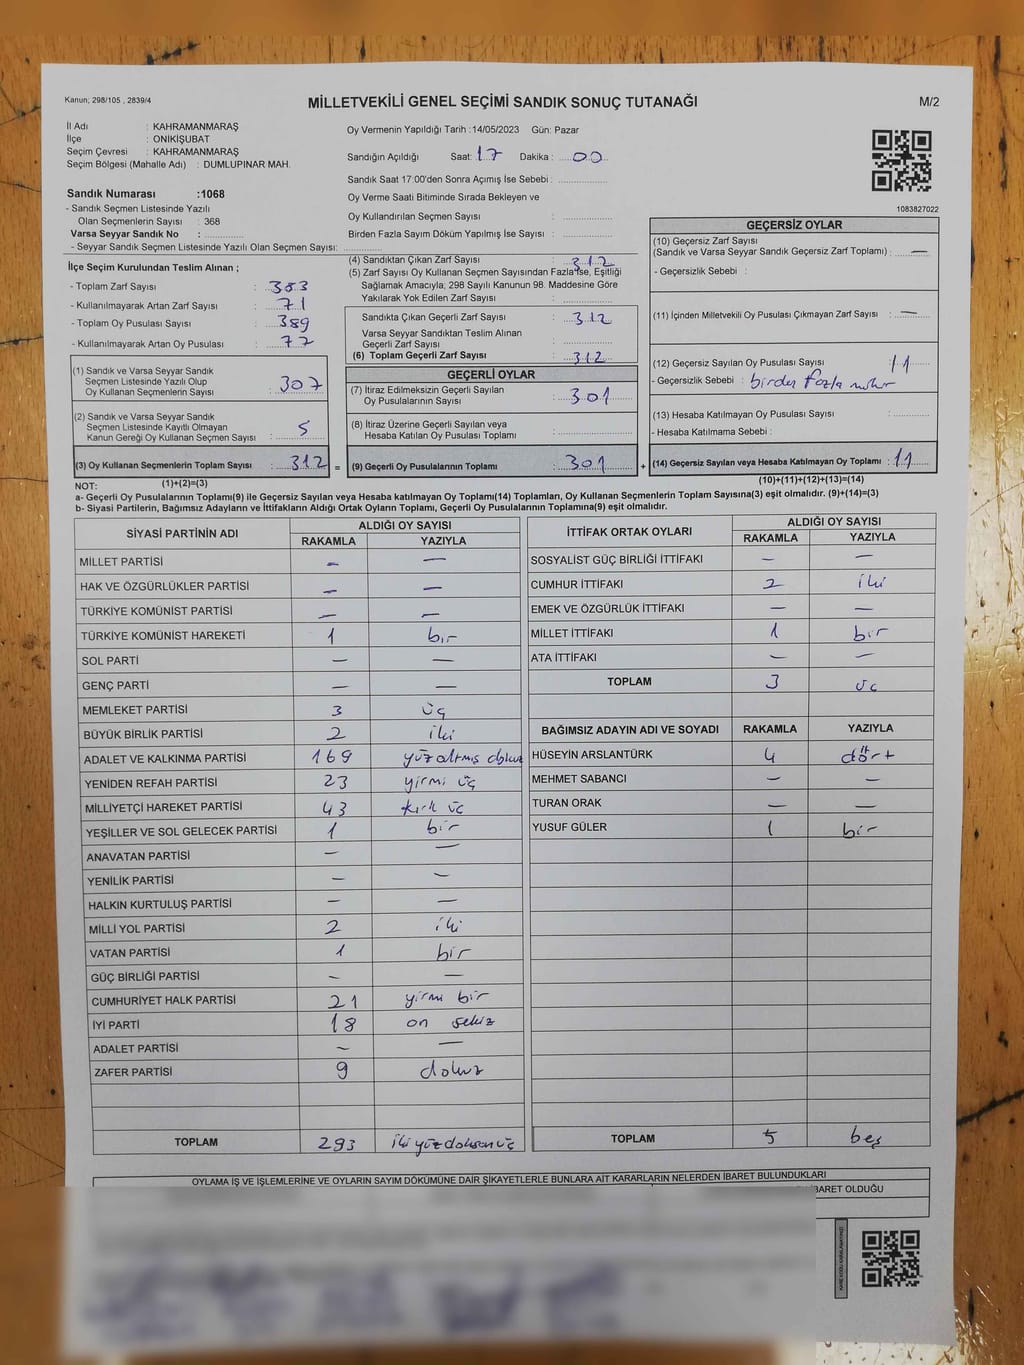 Kanun; 298/105 , 2839/4
MİLLETVEKİLİ GENEL SEÇİMİ SANDIK SONUÇ TUTANAĞI
M/2
İl Adı : KAHRAMANMARAŞ
İlçe : ONİKİŞUBAT
Seçim Çevresi : KAHRAMANMARAŞ
Seçim Bölgesi (Mahalle Adı) : DUMLUPINAR MAH.
Sandık Numarası :1068
- Sandık Seçmen Listesinde Yazılı
Olan Seçmenlerin Sayısı : 368
Varsa Seyyar Sandık No :
- Seyyar Sandık Seçmen Listesinde Yazılı Olan Seçmen Sayısı:
Oy Vermenin Yapıldığı Tarih :14/05/2023 Gün: Pazar
Sandığın Açıldığı Saat: 17 Dakika : 00
Sandık Saat 17:00'den Sonra Açımış İse Sebebi :
Oy Verme Saati Bitiminde Sırada Bekleyen ve
Oy Kullandırılan Seçmen Sayısı :
Birden Fazla Sayım Döküm Yapılmış İse Sayısı :
1083827022
İlçe Seçim Kurulundan Teslim Alınan ;
- Toplam Zarf Sayısı : 383
- Kullanılmayarak Artan Zarf Sayısı : 71
- Toplam Oy Pusulası Sayısı : 389
- Kullanılmayarak Artan Oy Pusulası : 77
(1) Sandık ve Varsa Seyyar Sandık
Seçmen Listesinde Yazılı Olup
Oy Kullanan Seçmenlerin Sayısı : 307
(2) Sandık ve Varsa Seyyar Sandık
Seçmen Listesinde Kayıtlı Olmayan
Kanun Gereği Oy Kullanan Seçmen Sayısı : 5
(3) Oy Kullanan Seçmenlerin Toplam Sayısı : 312 =
(4) Sandıktan Çıkan Zarf Sayısı : 312
(5) Zarf Sayısı Oy Kullanan Seçmen Sayısından Fazla İse, Eşitliği
Sağlamak Amacıyla; 298 Sayılı Kanunun 98. Maddesine Göre
Yakılarak Yok Edilen Zarf Sayısı :
Sandıkta Çıkan Geçerli Zarf Sayısı : 312
Varsa Seyyar Sandıktan Teslim Alınan
Geçerli Zarf Sayısı :
(6) Toplam Geçerli Zarf Sayısı : 312
GEÇERLİ OYLAR
(7) İtiraz Edilmeksizin Geçerli Sayılan
Oy Pusulalarının Sayısı : 301
(8) İtiraz Üzerine Geçerli Sayılan veya
Hesaba Katılan Oy Pusulası Toplamı :
(9) Geçerli Oy Pusulalarının Toplamı : 301 +
GEÇERSİZ OYLAR
(10) Geçersiz Zarf Sayısı
(Sandık ve Varsa Seyyar Sandık Geçersiz Zarf Toplamı) : —
- Geçersizlik Sebebi :
(11) İçinden Milletvekili Oy Pusulası Çıkmayan Zarf Sayısı : —
(12) Geçersiz Sayılan Oy Pusulası Sayısı : 11
- Geçersizlik Sebebi : birden fazla mühür
(13) Hesaba Katılmayan Oy Pusulası Sayısı :
- Hesaba Katılmama Sebebi :
(14) Geçersiz Sayılan veya Hesaba Katılmayan Oy Toplamı : 11
NOT: (1)+(2)=(3)
(10)+(11)+(12)+(13)=(14)
a- Geçerli Oy Pusulalarının Toplamı(9) ile Geçersiz Sayılan veya Hesaba katılmayan Oy Toplamı(14) Toplamları, Oy Kullanan Seçmenlerin Toplam Sayısına(3) eşit olmalıdır. (9)+(14)=(3)
b- Siyasi Partilerin, Bağımsız Adayların ve İttifakların Aldığı Ortak Oyların Toplamı, Geçerli Oy Pusulalarının Toplamına(9) eşit olmalıdır.
SİYASİ PARTİNİN ADI ALDIĞI OY SAYISI
RAKAMLA YAZIYLA
MİLLET PARTİSİ — —
HAK VE ÖZGÜRLÜKLER PARTİSİ — —
TÜRKİYE KOMÜNİST PARTİSİ — —
TÜRKİYE KOMÜNİST HAREKETİ 1 bir
SOL PARTİ — —
GENÇ PARTİ — —
MEMLEKET PARTİSİ 3 üç
BÜYÜK BİRLİK PARTİSİ 2 iki
ADALET VE KALKINMA PARTİSİ 169 yüz altmış dokuz
YENİDEN REFAH PARTİSİ 23 yirmi üç
MİLLİYETÇİ HAREKET PARTİSİ 43 kırk üç
YEŞİLLER VE SOL GELECEK PARTİSİ 1 bir
ANAVATAN PARTİSİ — —
YENİLİK PARTİSİ — —
HALKIN KURTULUŞ PARTİSİ — —
MİLLİ YOL PARTİSİ 2 iki
VATAN PARTİSİ 1 bir
GÜÇ BİRLİĞİ PARTİSİ — —
CUMHURİYET HALK PARTİSİ 21 yirmi bir
İYİ PARTİ 18 on sekiz
ADALET PARTİSİ — —
ZAFER PARTİSİ 9 dokuz
TOPLAM 293 iki yüz doksan üç
İTTİFAK ORTAK OYLARI ALDIĞI OY SAYISI
RAKAMLA YAZIYLA
SOSYALİST GÜÇ BİRLİĞİ İTTİFAKI — —
CUMHUR İTTİFAKI 2 iki
EMEK VE ÖZGÜRLÜK İTTİFAKI — —
MİLLET İTTİFAKI 1 bir
ATA İTTİFAKI — —
TOPLAM 3 üç
BAĞIMSIZ ADAYIN ADI VE SOYADI RAKAMLA YAZIYLA
HÜSEYİN ARSLANTÜRK 4 dört
MEHMET SABANCI — —
TURAN ORAK — —
YUSUF GÜLER 1 bir
TOPLAM 5 beş
OYLAMA İŞ VE İŞLEMLERİNE VE OYLARIN SAYIM DÖKÜMÜNE DAİR ŞİKAYETLERLE BUNLARA AİT KARARLARIN NELERDEN İBARET BULUNDUKLARI
İBARET OLDUĞU